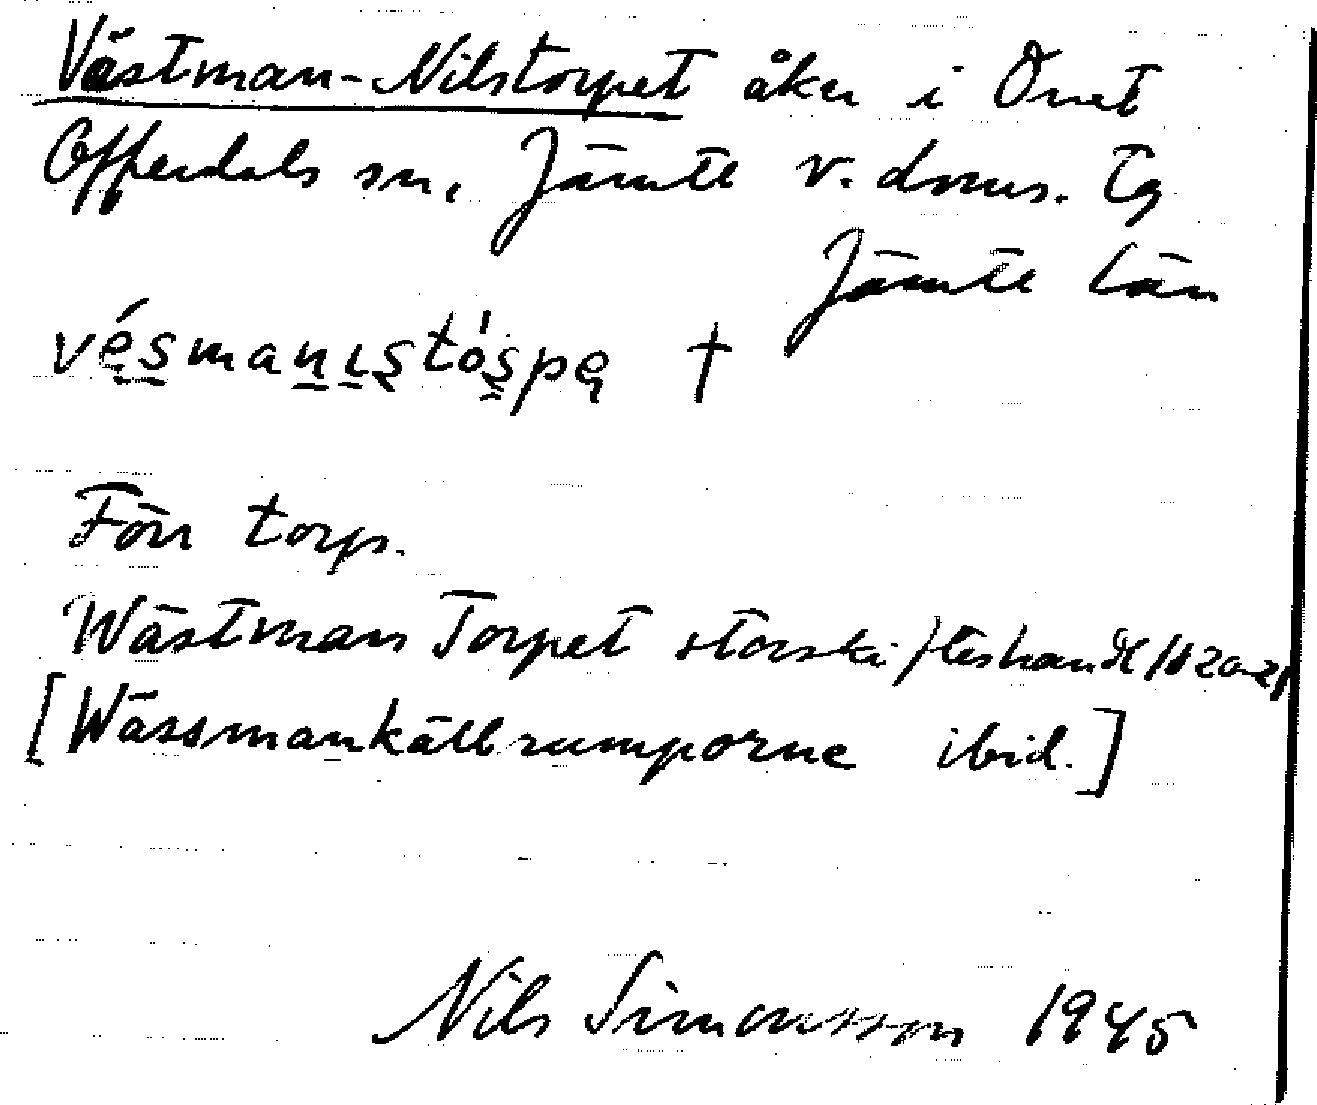 Västman-Nilstorpet åker i Önet
Offerdals sn, Jämtl v. doms. Tg
Jämtl län
vésmanıstóspe †
Förr torp.
Wästmans Torpet storskifteshandl 1820-21
[Wässmankällrumporne ibid.]
Nils Simonsson 1945